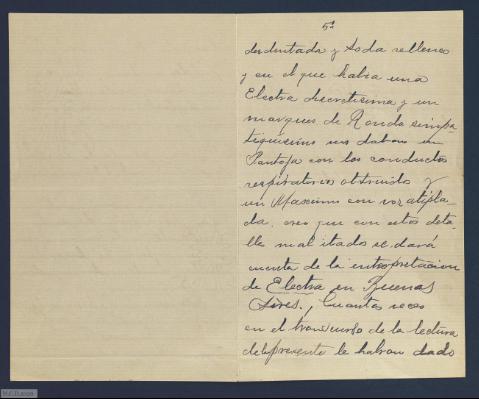 5ª
desdentada y toda relleno
y en el que habia una
Electra discretisima y un
marques de Ronda simpa-
tiquisimo nos daban un
Pantoja con los conductos
respiratorios obstruido y
un Maximo con voz atipla-
da. creo que con estos deta-
lles mal citados se dará
cuenta de la interpretacion
de Electra en Buenas
Aires. Cuantas veces
en el transcurso de la lectura
de la presente le habran dado